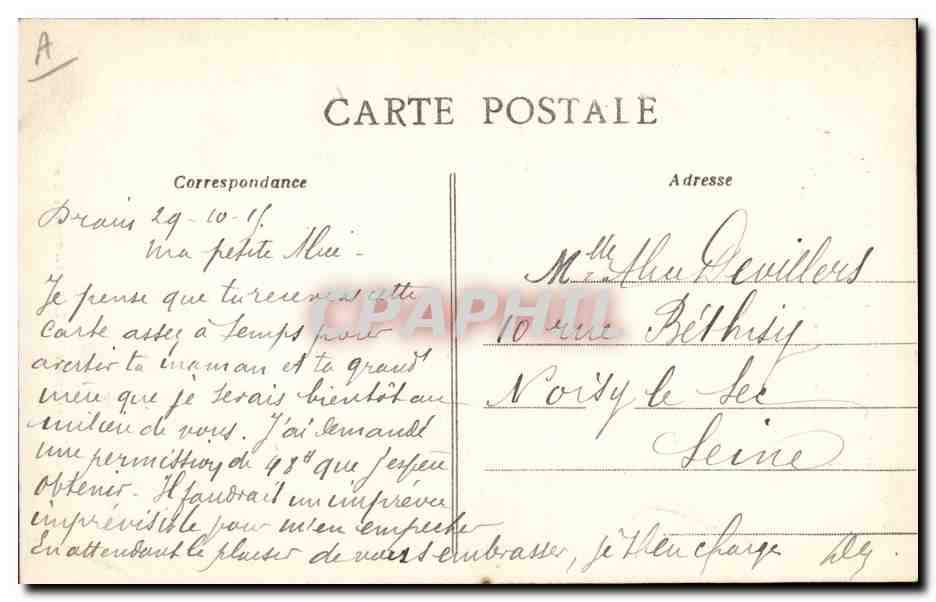 A
CARTE POSTALE
Correspondance
Adresse
29-10-15
Ma petite Alice -
Je pense que tu recevras cette
carte assez à temps pour
avertir ta maman et ta grand
mère que je serais bientôt au
milieu de vous. J'ai demandé
une permission de 48h que j'espère
obtenir. Il faudrait un imprévu
imprévisible pour m'en empecher
En attendant le plaisir de vous embrasser, je t'en charge
Mlle Alice Devillers
10 rue Béthisy
Noisy le Sec
Seine
CPAPHIL